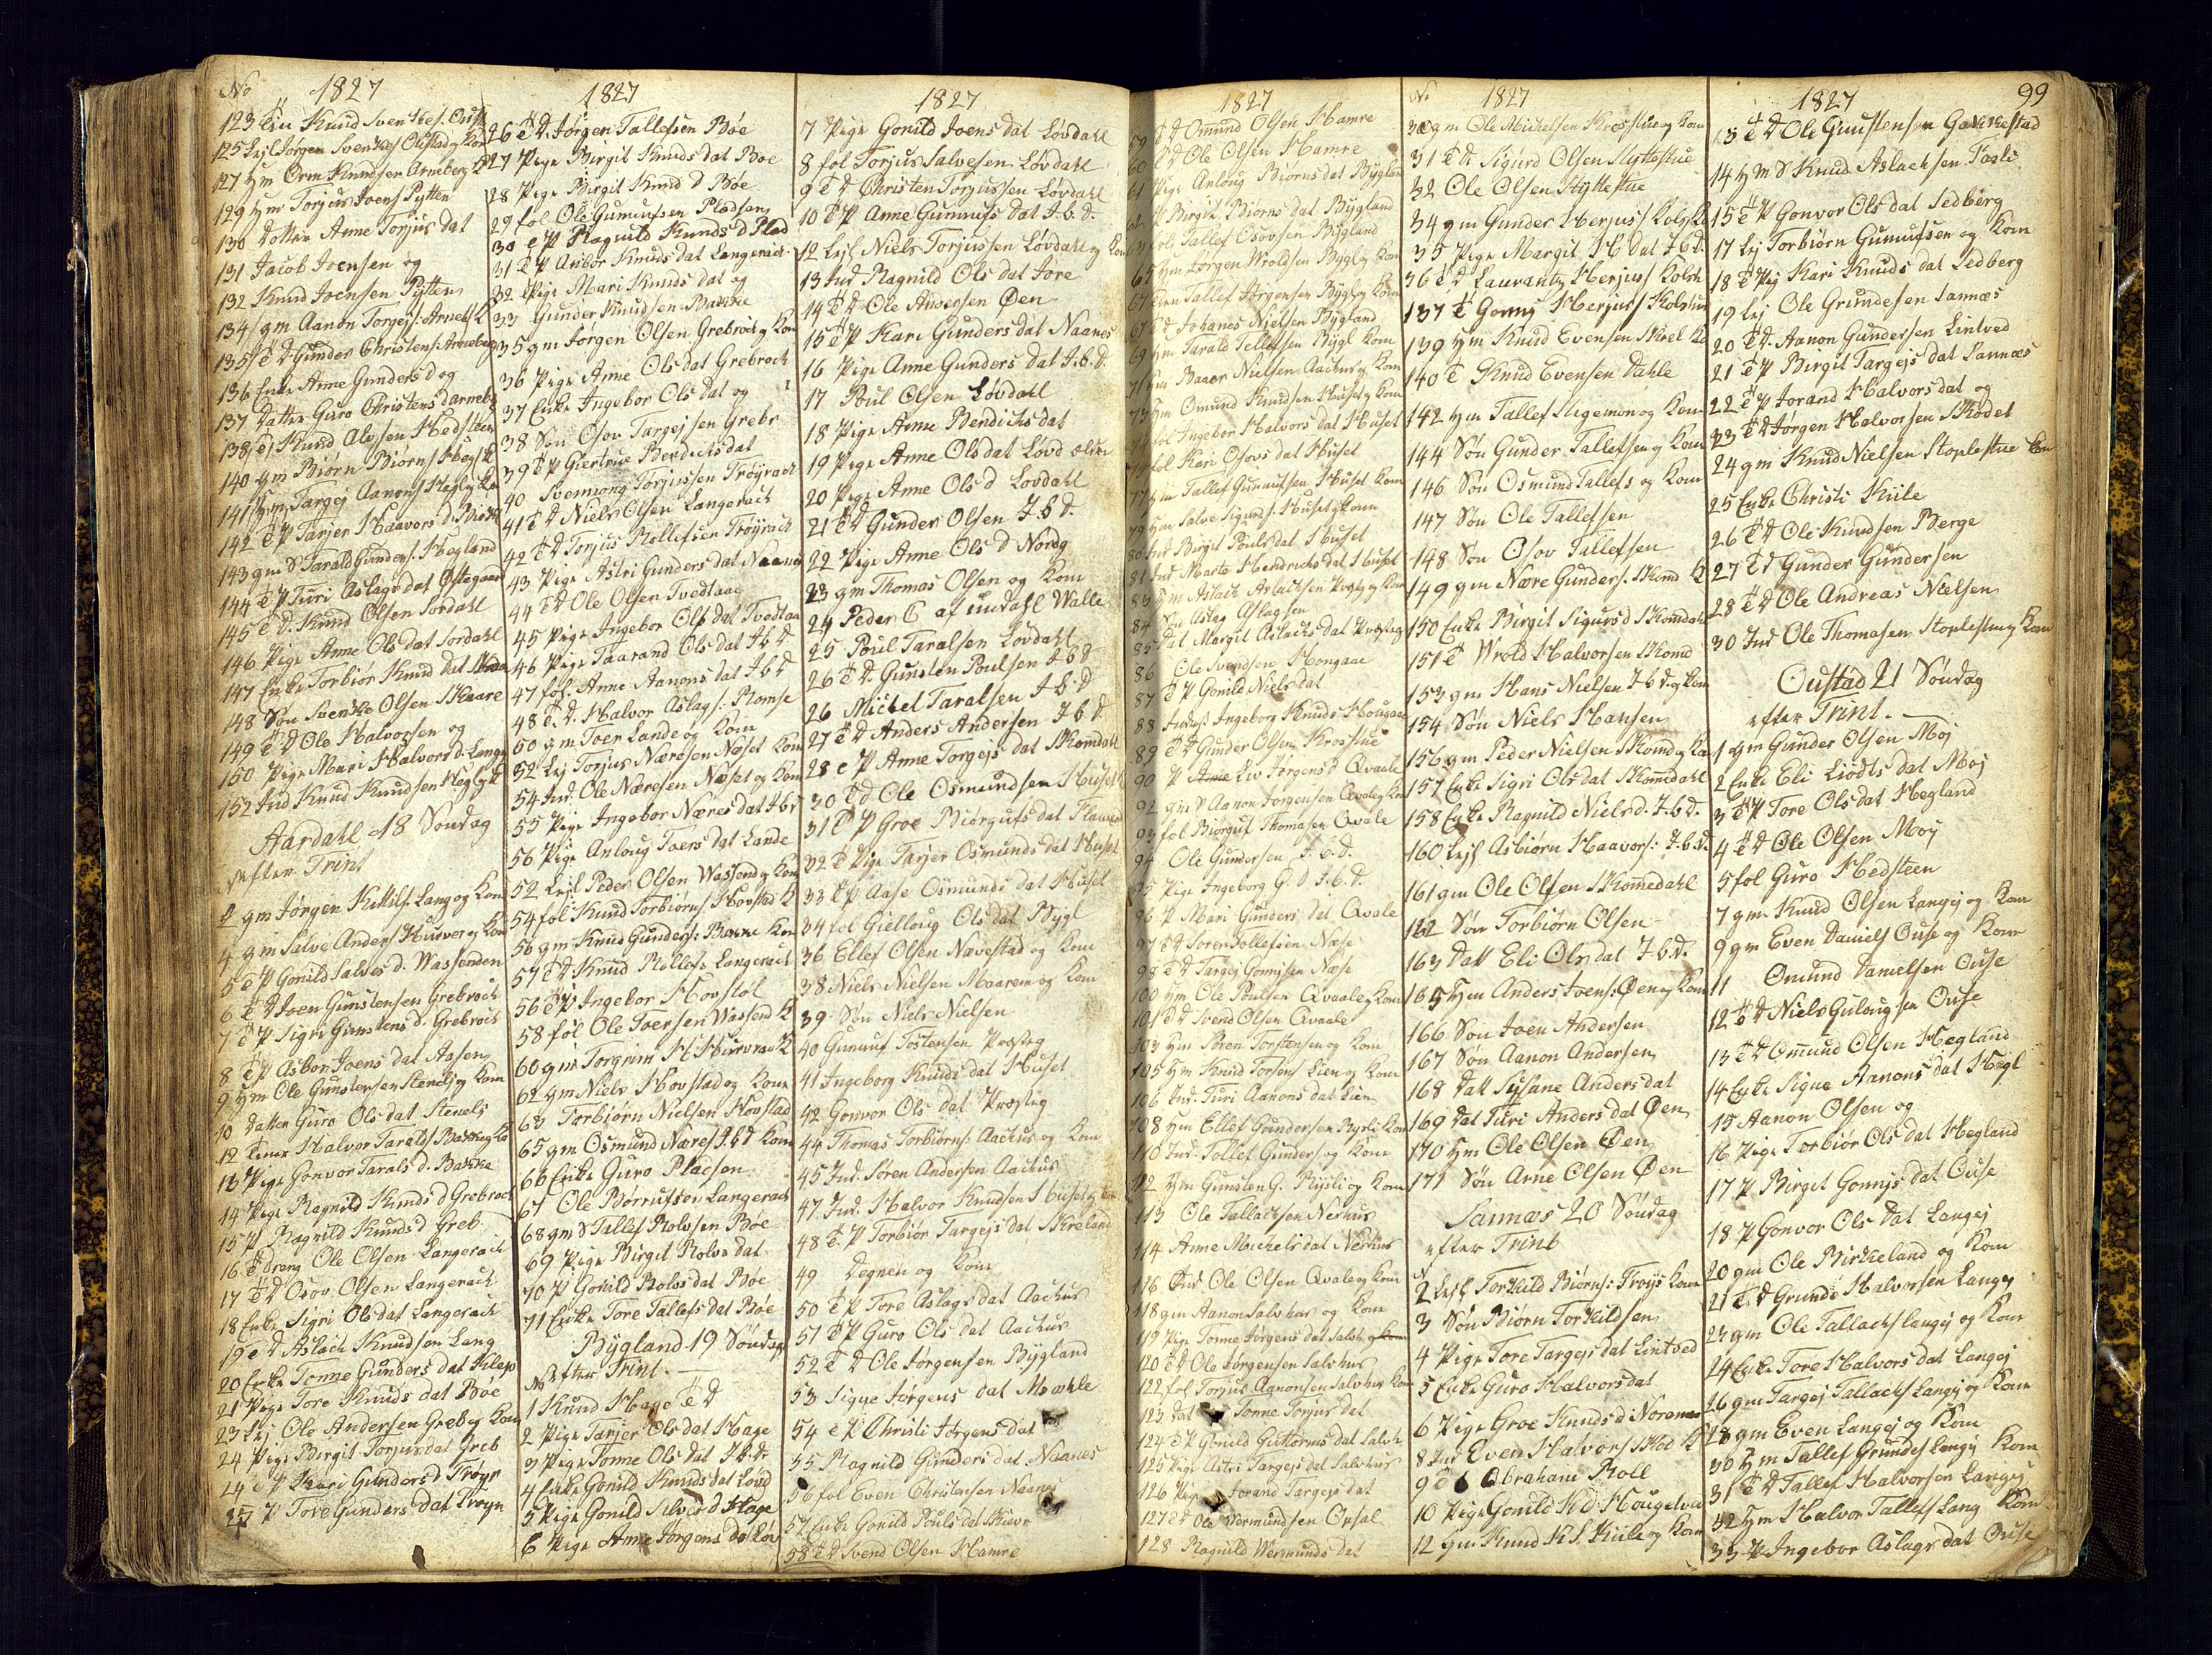 No 1827
123 Knud Svenkes. Oust
125 Lejl Jørgen Svenkes Olestad og Kon
127 Hm Orm Knudsen Arneberg K
129 Hm Torjus Joens Pytten
130 Datter Anne Torjus dat
131 Jacob Joensen og
132 Knud Joensen Pytten
134 gm Aanon Torgejs: Arneb K
135 T D Gunder Christens: Arneberg
136 Enke Anne Gunders d og
137 Datter Guro Christens d arneberg
138 Knud Alvsen Hedsteen
140 gm Biørn Biørns Hegl K
141 Hm Targej Aanons Hegl og Ko
142 T P Tarjer Haavors d. Birk
143 gm S Tarald Gunders: Hegland
144 T P Turi Aslags dat Østegaar
145 T D. Knud Olsen Jordahl
146 Pige Anne Ols dat Jordahl
147 Enke Torbiør Knud dat
148 Søn Svenke Olsen Skaare
149 T D Ole Halvorsen og
150 Pige Mari Halvors d. Lange
152 Ind Knud Knudsen Hegl og K
Aardahl 18 Søndag
efter Trint
2 gm Jørgen Kittils: Lang og Kon
4 gm Salve Anders Hurver og Kon
5 T P Gonild Salves d. Wassenden
6 T D Joen Gunstensen Grebrock
7 T P Sigri Gunstens d. Grebrock
8 T P Asbor Joens dat Aasen
9 Hm Ole Gunstensen Stenelj og Kon
10 Datter Guro Ols dat Stenelj
12 Halvor Taralds Bakke og Ko
13 Pige Gonvor Tarals d. Bakke
14 Pige Ragnild Knuds d Grebrock
15 P Ragnild Knuds d Greb.
16 T Dreng Ole Olsen Langerach
17 T D Osov Olsen Langerach
18 Enke Sigri Ols dat Langerach
19 T D Aslach Knudsen Lang
20 Enke Tonne Gunders dat Klep
21 Pige Tore Knuds dat Bøe
23 Lej Ole Andersen Greb og Kon
24 Pige Birgit Torjus dat Greb
24 T P Kari Gunders d Trøyr
25 P Tore Gunders dat Trøyn
1827
26 T D. Jørgen Tallefsen Bøe
27 Pige Birgit Knuds dat Bøe
28 Pige Birgit Knud d Bøe
29 fol Ole Gunnufsen Pladsen
30 T P Ragnild Knuds d Plad
31 T P Anbor Knuds dat Langerach
32 Pige Mari Knuds dat og
33 Gunder Knudsen Bakke
35 gm Jørgen Olsen Grebrock og Kon
36 Pige Anne Ols dat Grebrock
37 Enke Ingebor Ols dat og
38 Søn Osov Targejsen Grebr
39 T P Giertrue Bendichs dat
40 Svennung Torjussen Trøyrach
41 T D Niels Olsen Langerach
42 T D Torjus Rollefsen Trøyrach
43 Pige Astri Gunders dat Naanes
44 T D Ole Olsen Tvedtaae
45 Pige Ingebor Ols dat Tvedtaae
46 Pige Taarand Ols dat I b D
47 fol. Anne Aanons dat I b d
48 T D. Halvor Aslags: Romse
50 gm Joen Lande og Kon
52 Lej Torjus Næresen Næset Kon
54 Ind. Ole Næresen Næset og Kon
55 Pige Ingebor Næres dat I b d
56 Pige Anloug Joers dat Lande
52 Lejl Peder Olsen Wassend og Kon
54 fol Knud Torbiørns: Hovstad K
56 gm Knud Gunders: Bakke Kon
57 T D Knud Rollefs Langerach
56 T P Ingebor Hovstøl
58 føl Ole Joersen Wassend K
60 gm Torgrim
62 gm Niels Hovstad og Kone
63 Torbiørn Nielsen Hovstad
65 gm Osmund Næres I. b D Kon
66 Enke Guro Pladsen
67 Ole Børrufsen Langerach
68 gm S Tallef Rolvsen Bøe
69 Pige Birgit Rolvs dat
70 P Gonild Rolvs dat Bøe
71 Enke Tore Tallefs dat Bøe
Bygland 19 Søndag
No efter Trint.
1 Knud Hage T D
2 Pige Tarjer Ols dat Hage
3 Pige Tonne Ols dat I b. d
4 Enke Gonild Knuds dat Lovd
5 Pige Gonild Salves d Hage
6 Pige Anne Jørgens d Lov
1827
7 Pige Gonild Joens dat Løvdahl
8 føl Torjus Salvesen Løvdahl
9 T D Christen Torjussen Løvdahl
10 T P Anne Gunnufs dat I. b. d.
12 Lejl Niels Torjussen Løvdahl og Kon
13 Ind Ragnild Ols dat Jore
14 T D Ole Andersen Øen
15 T P Kari Gunders dat Naanes
16 Pige Anne Gunders dat I. b. D.
17 Poul Olsen Løvdahl
18 Pige Anne Bendichs dat
19 Pige Anne Ols dat Løvd ældre
20 Pige Anne Ols d Lovdahl
21 T D Gunder Olsen I. b d.
22 Pige Anne Ols d Nordg
23 gm Thomas Olsen og Kon
24 Peder C af undahl Walle
25 Poul Taralsen Lovdahl
26 T D. Gunsten Poulsen I b D
26 Michel Taralsen I. b. D
27 T D Anders Andersen I. b. d
28 T P Anne Torgejs dat Skomdahl
30 T d Ole Osmundsen Huset
31 T P Groe Biørgufs dat Flaaren
32 T Pige Tarjer Osmunds dat Huset
33 T P Aase Osmunds dat Huset
34 fol Giellaug Ols dat Bygl
36 Ellef Olsen Nævestad og Kon
38 Niels Nielsen Maaren og Kon
39 Søn Niels Nielsen
40 Gunnuf Tostensen Præsteg
41 Ingeborg Knuds dat Huset
42 Gonvor Ols dat Præsteg
44 Thomas Torbiørns: Aakus og Kon
45 Ind. Søren Andersen Aakus
47 Ind. Halvor Knudsen Huset og Kon
48 T. P Torbiør Targejs dat Skreland
49 Degnen og Kone
50 T P Tore Aslags dat Aakus
51 T P Guro Ols dat Aakus
52 T D Ole Jørgensen Bygland
53 Signe Jørgens dat Moehle
54 T P Christi Jørgens dat
55 Ragnild Gunders dat Naanes
56 fol Even Christensen Naanes
57 Enke Gonild Pouls dat
58 T D Svend Olsen Hamre
1827
59 T D Omund Olsen Hamre
60 T D Ole Olsen Hamre
61 Pige Anloug Biørns dat Bygland
62 P Birgit Biørns dat Bygland
fol Tallef Osovsen Bygland
65 Hm Jørgen Wroldsen Bygl og Kon
67 Tallef Jørgensen Bygl og Kon
67 T D. Johanes Nielsen Bygland
69 Hm Tarald Tellefsen Bygl Kon
71 Hm Baaer Nielsen Aakus og Kon
73 Hm Omund Knudsen Huset og Kon
74 fol Ingebor Halvors dat Huset
fol Kari Osovs dat Huset
77 Hm Tallef Gunnufsen Huset Kon
79 Hm Salve Sigurds: Huset og Konn
80 Ind Birgit Pouls dat Huset
81 Ind Marte Hendrichs dat Huset
83 Hm Aslach Aslachsen Præsteg Kon
84 Søn Aslag Aslagsen
85 Dat Margit Aslachs dat Præsteg
86 Ole Svendsen Hongaae
87 T P Gonild Niels dat
88 Ingeborg Knuds Hougaae
89 T D Gunder Olsen Krostue
90 P Liv Jørgens d Qvaale
92 gm S Aanon Jørgensen Qvale og Kon
93 fol Biørguf Thomasen Qvale
94 Ole Gundersen I. b. D.
95 Pige Ingeborg G. D I. b. d.
96 P Mari Gunders dat Qvale
97 T D Søren Tollefsen Næse
98 T D Targej Gonnysen Næse
100 Hm Ole Poulsen Qvaale og Kon
101 T D Svend Olsen Qvaale
103 Hm Bren Torstensen og Kon
105 Hm Knud Torsens Lien og Kon
106 Ind. Turi Aanons dat Lien
108 Hm Ellef Gundersen Bysli Kon
110 Ind. Tollef Gunders og Kone
112 Hm Gunsten G. Rysli og Kon
113 Ole Tallachsen Nerhus
114 Anne Michels dat Nerhus
116 Ind Ole Olsen Qvale og Kon
118 gm Aanon Salvhus og Kone
119 Pige Tonne Jørgens dat Salvh
120 T D Ole Jørgensen Salvhus
122 fol Torjus Aanonsen Salvhus Kon
123 Dat Tonne Torjus dat
124 T P Gonild Guttorms dat Salvh
125 Pige Astri Targejs dat Salvhus
126 Pige Jorand Targejs dat
127 T D Ole Wermundsen Orsal
128 Ragnild Wermunds dat
No 1827
30 gm Ole Michelsen Krosstue og Kon
31 T D Sigurd Olsen Hyttestue
32 Ole Olsen Hyttestue
34 gm Gunder Herjus Kols K
35 Pige Margit H dat I b d.
36 T D Laurantz Herjus Kolsh
137 T Gonny Herjus Kolshus
139 Hm Knud Evensen Skrel Ko
140 T Knud Evensen Dahle
142 Hm Tallef Stigemon og Kon
144 Søn Gunder Tallefsen og Kon
146 Søn Osmund Tallefs og Kon
147 Søn Ole Tallefsen
148 Søn Osov Tallefsen
149 gm Nære Gunders: Skomd K
150 Enke Birgit Sigurs d Skomdahl
151 T Wrold Halvorsen Skomd
153 gm Hans Nielsen I b d. og Kon
154 Søn Niels Hansen
156 gm Peder Nielsen Skomd og Kon
157 Enke Sigri Ols dat Skomedahl
158 Enke Ragnild Niels d. I. b. D.
160 Lejl Asbiørn Haavors: I. b. d.
161 gm Ole Olsen Skomedahl
162 Søn Torbiørn Olsen
163 Datt Eli Ols dat I. b. D.
165 Hm Anders Joens: Øen og Kon
166 Søn Joen Andersen
167 Søn Aanon Andersen
168 Datt Sysane Anders dat
169 Dat Turi Anders dat Øen
170 Hm Ole Olsen Øen
171 Søn Arne Olsen Øen
Sannæs 20 Søndag
efter Trint
2 Lejl Torkild Biørns: Troys Kon
3 Søn Biørn Torkildsen
4 Pige Tore Targejs dat Lintved
5 Enke Guro Halvors dat
6 Pige Groe Knuds d: Noremes
8 Ind Even Halvors Skod K
9 T D Abraham Roll
10 Pige Gonild K d Hougetvei
12 gm Knud K S. Kiile og Kon
1827 99
13 T D Ole Gunstensen Gakkestad
14 Hm S Knud Aslachsen Fosli
15 T P Gonvor Ols dat Sedberg
17 Lej Torbiørn Gunnufsen og Kon
18 T Pig Kari Knuds dat Sedberg
19 Lej Ole Grundesen Sannæs
20 T D. Aanon Gundersen Lintved
21 T P Birgit Targejs dat Sannæs
22 T P Jorand Halvors dat og
23 T D Jørgen Halvorsen Skodet
24 gm Knud Nielsen Stoplestue Kon
25 Enke Christi Kiile
26 T D Ole Knudsen Berge
27 T D Gunder Gundersen
28 T D Ole Andreas Nielsen
30 Ind Ole Thomasen Stoplestue og Kon
Oustad 21 Søndag
efter Trint.
1 gm Gunder Olsen Moj
2 Enke Eli Liodts dat Moj
3 T P Tore Ols dat Hegland
4 T D Ole Olsen Moy
5 fol Guro Hedsteen
7 gm Knud Olsen Langej og Kon
9 gm Even Daniels Ouse og Kone
11 Omund Danielsen Ouse
12 T D Niels Gulougsen Ouse
13 T D Omund Olsen Hegland
14 Enke Signe Aanons dat Hegl
15 Aanon Olsen og
16 Pige Torbiør Ols dat Hegland
17 P Birgit Gonnys dat Ouse
18 P Gonvor Ols dat Langej
20 gm Ole Birkeland og Kon
21 T D Grunde Halvorsen Langej
23 gm Ole Tallachs Langej og Kon
24 Enke Tore Halvors dat Langej
26 gm Targej Tallachs Langej og Kon
28 gm Even Langej og Kon
30 Hm Tallef Grundes Langej Kon
31 T D Tallef Halvorsen Langej
32 Hm Halvor Tallefs Lang Kon
33 P Ingebor Aslags dat Ouse